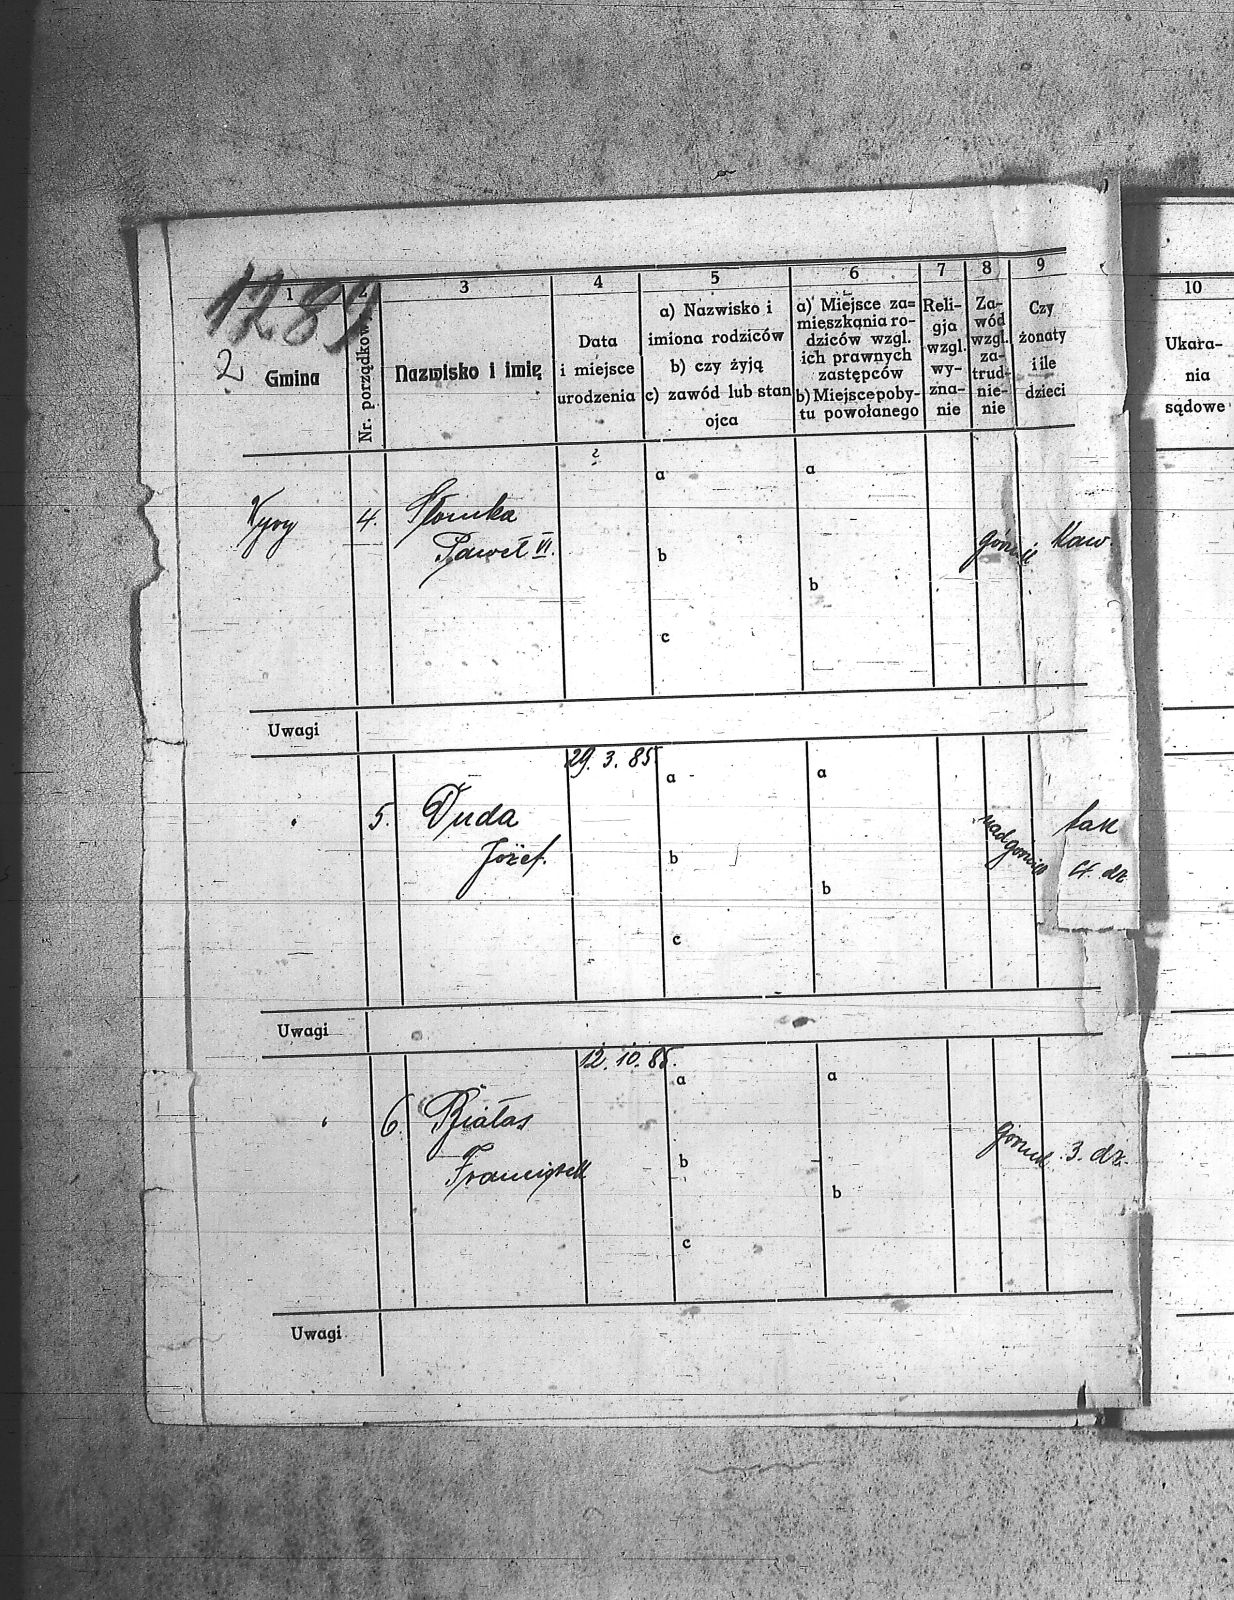 1289
2
1
2
3
4
5
6
7
8
9
10
Gmina
Nr. porządkow
Nazwisko i imię
Data
i miejsce
urodzenia
a) Nazwisko i
imiona rodziców
b) czy żyją
c) zawód lub stan
ojca
a) Miejsce za=
mieszkania ro-
dziców wzgl.
ich prawnych
zastępców
b) Miejsce poby-
tu powołanego
Reli-
gja
wzgl.
wy-
zna-
nie
Za-
wód
wzgl.
za-
trud-
nie-
nie
Czy
żonaty
i ile
dzieci
Ukara-
nia
sądowe
Wyry
4.
Słomka
Paweł VI.
a
b
c
a
b
Kaw.
Uwagi
5.
Duda
Józef.
29. 3. 85
a
b
c
a
b
tak
4. dz
Uwagi
6.
Białas
Franciszek
12. 10. 85.
a
b
c
a
b
górnik
3. dz.
Uwagi